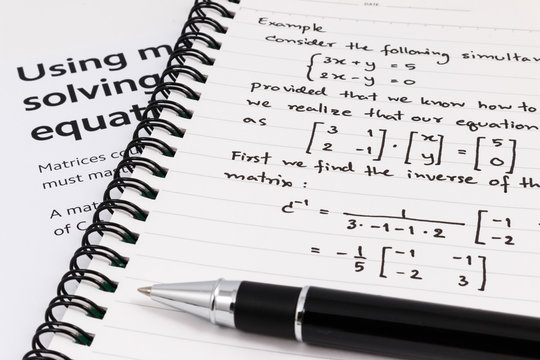 Using m
solving
equat
Matrices co
must ma
A mat
of C
DATE
Example
Consider the following simultan
{ 3x + y = 5
2x - y = 0
provided that we know how to
we realize that our equation
as [3 1 2 -1] · [x y] = [5 0]
First we find the inverse of the
matrix :
c⁻¹ = 1 / 3·-1-1·2 [-1 -2
= -1/5 [-1 -1 -2 3]